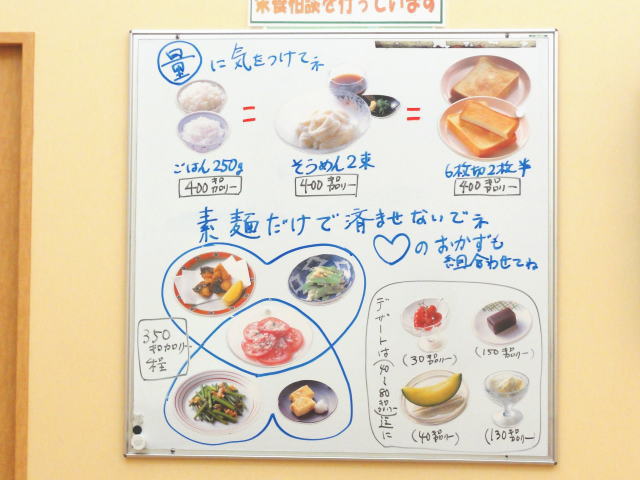 栄養相談を行っています
量に気をつけてネ
=
=
ごはん250g
400キロカロリー
そうめん2束
400キロカロリー
6枚切2枚半
400キロカロリー
素麺だけで済ませないでネ
♡のおかずも
組合わせてね
350
キロカロリー
程
デザートは(40~80キロカロリー)迄に
(30キロカロリー)
(150キロカロリー)
(40キロカロリー)
(130キロカロリー)